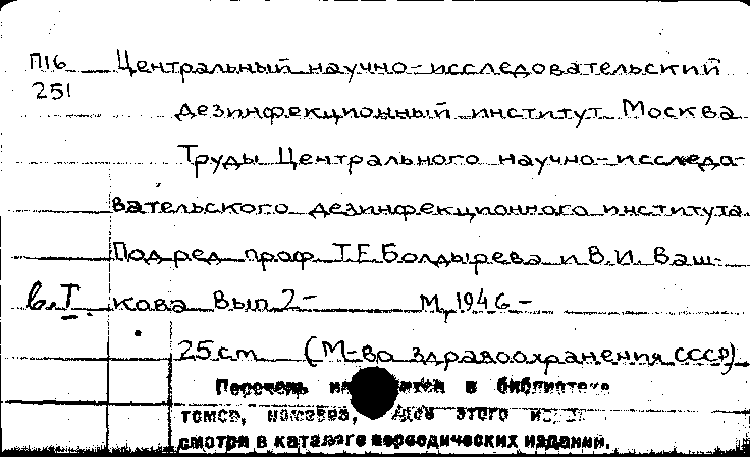 П16 Центральный научно-исследовательский
251 дезинфекционный институт Москва
Труды Центрального научно-исследо-
вательского дезинфекционного института.
Под ред проф. Т.Е. Болдырева и В.И. Ваш-
б.Т. кова Вып 2- М, 1946-
25 cm (М-во здравоохранения СССР)
Перечень в библиотеке
томов, номеров, этого
смотри в каталоге периодических изданий.